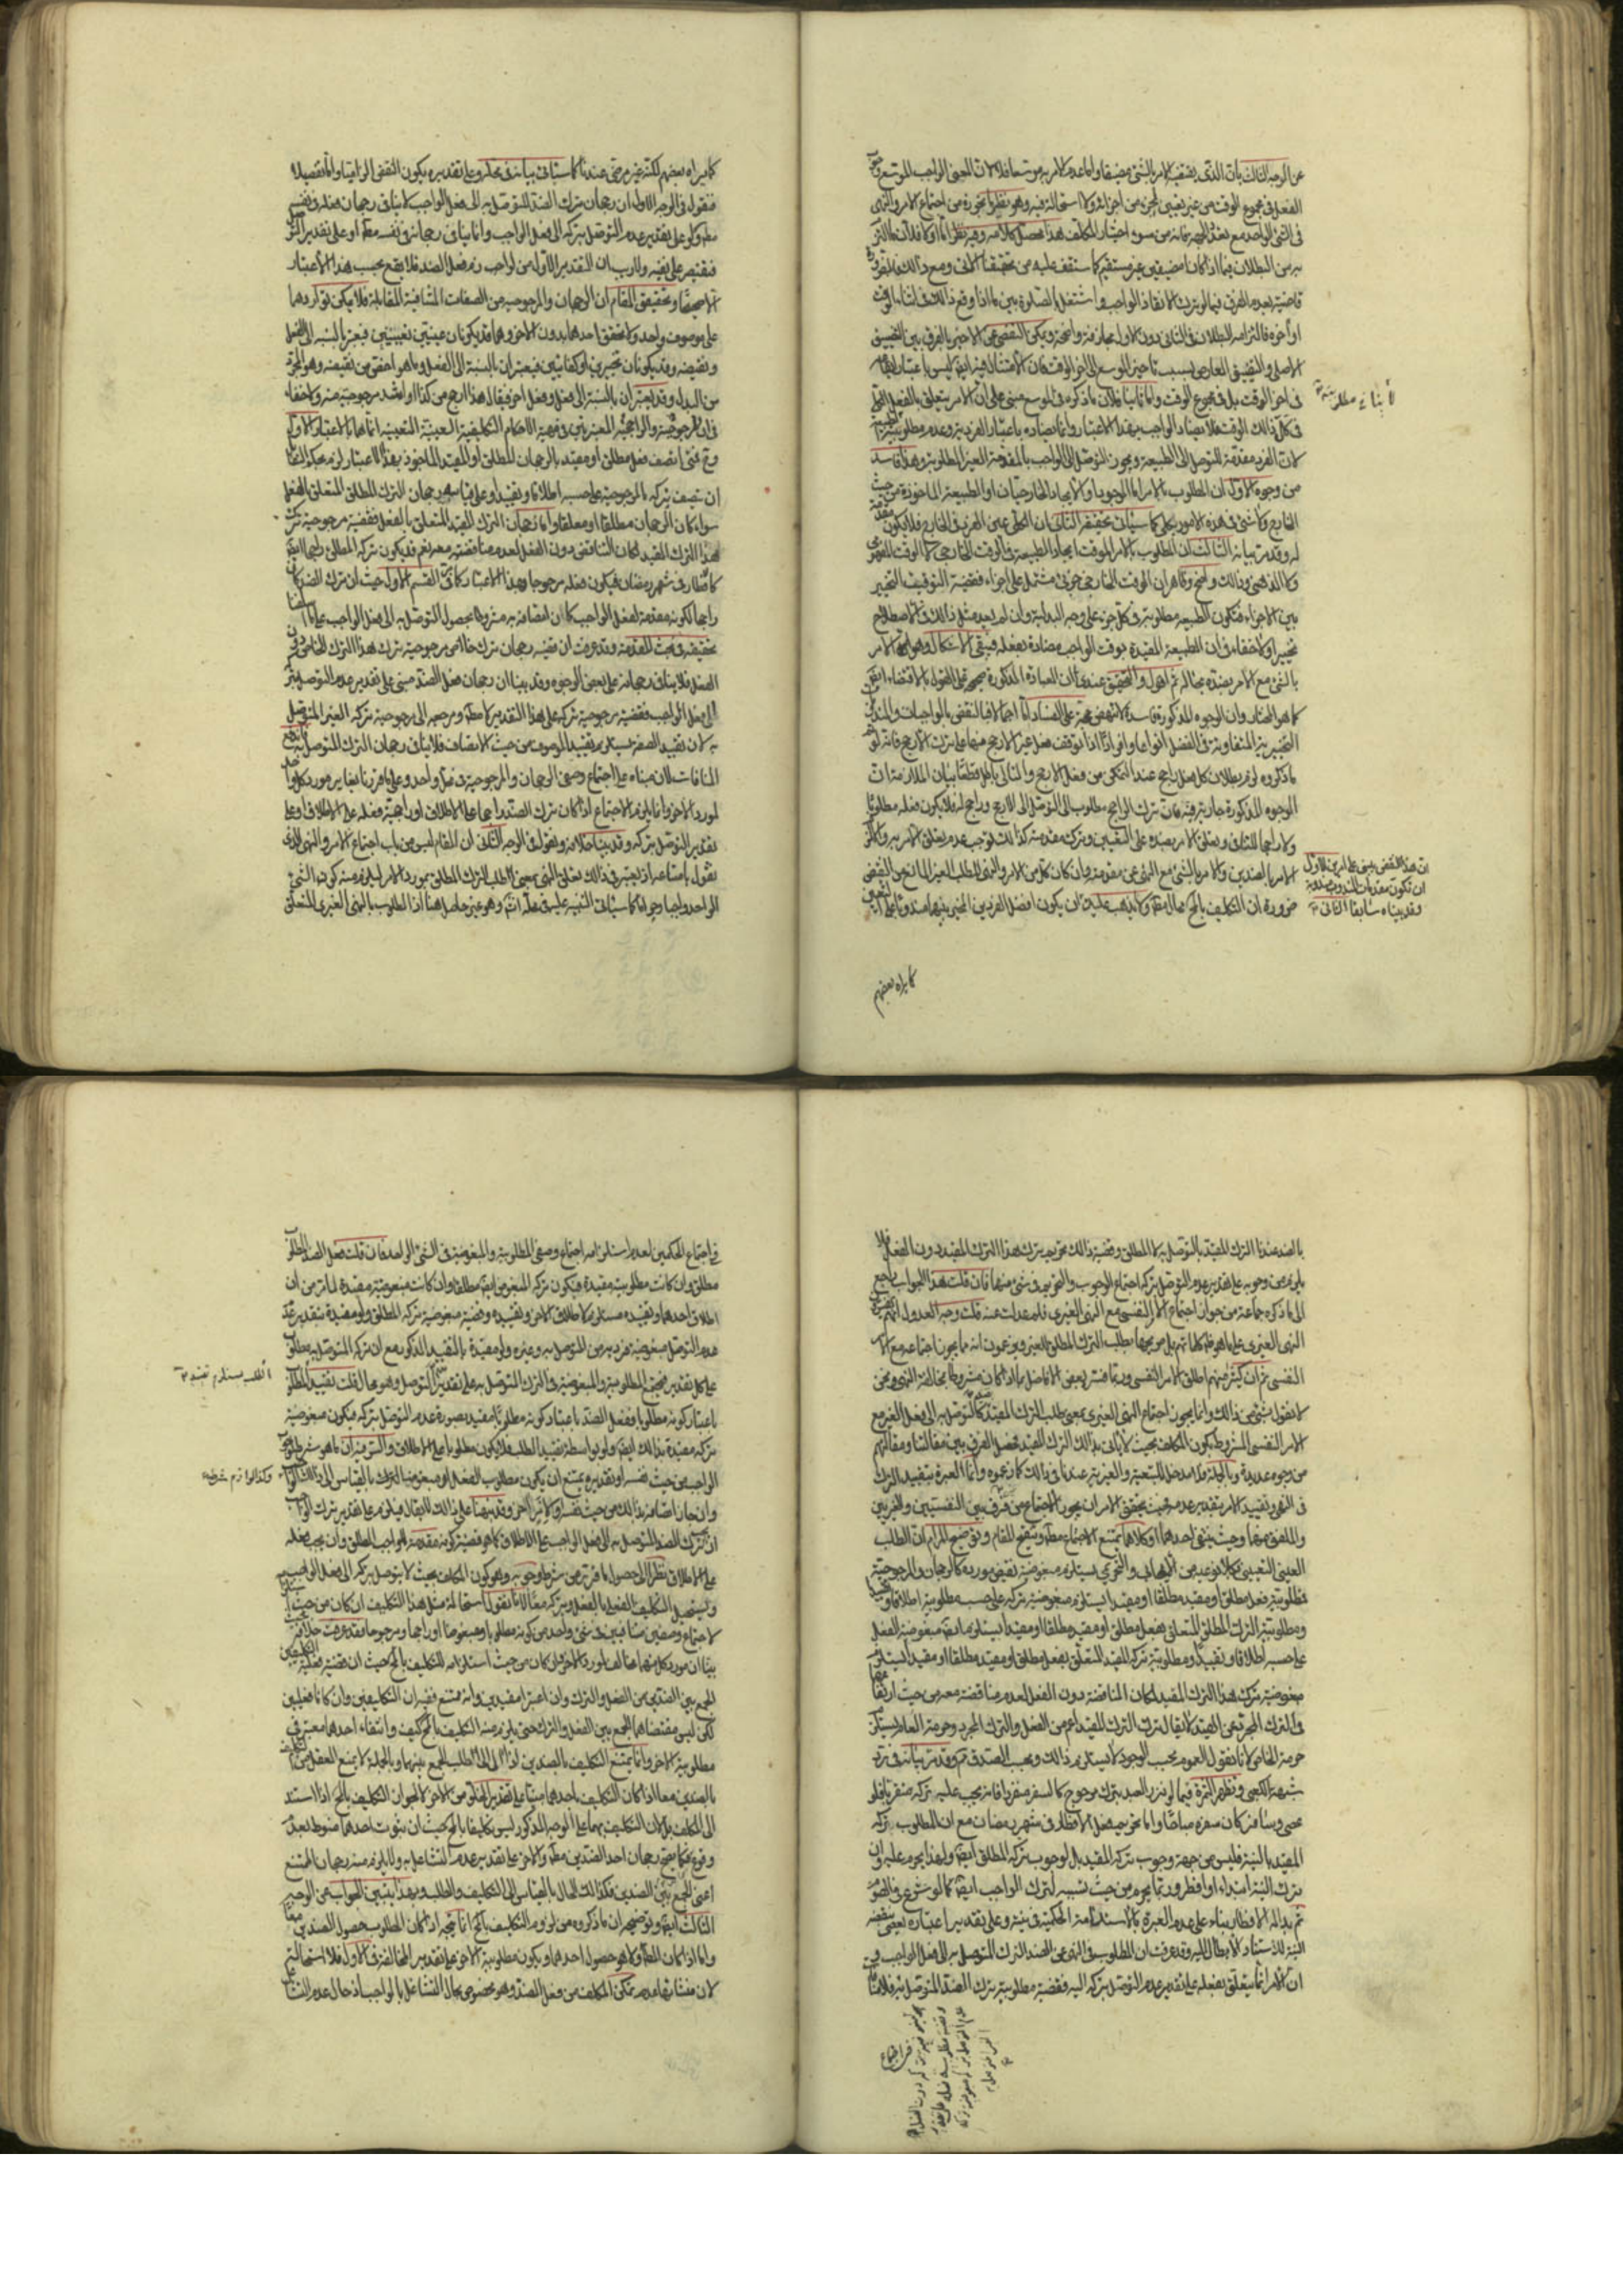 عن الوجه الثالث بان الذى يقتضيه الامر بالشئ مضيقا وانما عدم الامر به موسعا فلا لان المعنى الواجب الموسع
الفعل فى مجموع الوقت من غير تعيين لجزء من اجزائه ولا استحالة فيه وهو نظير ما نجوزه من اجتماع الامر والنهى
فى الشئ الواحد مع تعدد الجهة فانه من سوء اختيار المكلف هذا محصل كلامه وفيه نظر اما اولا فلان ما التزم
به من البطلان فيما اذا كانا مضيقين غير مستقيم كما ستقف عليه من تحقيقنا الاتى ومع ذلك فالضرورة
قاضية بعدم الفرق فيما لو ترك الانقاذ الواجب واشتغل بالصلوة بين ما اذا وقع ذلك فى اثناء الوقت
او اخره فالتزامه البطلان فى الثانى دون الاول مجازفة واضحة ويمكن التفصى عن الاخير بالفرق بين التضييق
الاصلى والتضييق العارض بسبب تاخير الموسع الى اخر الوقت فان الامتثال فيه ايضا ليس باعتبار ايقاعه
فى اخر الوقت بل فى مجموع الوقت واما ثانيا فلان ما ذكره فى الموسع مبنى على ان الامر يتعلق بالفعل الكلى
فى كل ذلك الوقت فلا يضاد الواجب بهذا الاعتبار وانما يضاده باعتبار الفردية وعدم مطلوبيته
لان الفرد مقدمة للتوصل الى الطبيعة ويجوز التوصل الى الواجب بالمقدمة الغير المطلوبة وهذا فاسد
من وجوه الاول ان المطلوب بالامر اما الوجود او الايجاد الخارجيان او الطبيعة الماخوذة من حيث
الخارج ولا شئ فى هذه الامور بكلى كما سيأتى تحقيقه الثانى ان الكلى عين الفرد فى الخارج فلا يكون مقدمة
له وقد مر بيانه الثالث ان المطلوب بالامر الموقت ايجاد الطبيعة فى الوقت الخارجى لا الوقت المفهومى
ولا الذهنى وذلك واضح وظاهر ان الوقت الخارجى جزئى مشتمل على اجزاء فقضية التوقيت التخيير
بين الاجزاء فتكون الطبيعة مطلوبة فى كل جزء على وجه البدلية وان لم يعد مثل ذلك فى الاصطلاح
تخييرا ولا خفاء فى ان الطبيعة المقيدة بوقت الواجب مضادة لفعله فيبقى الاشكال وهو لزوم الامر
بالشئ مع الامر بضده بحاله ثم اقول والتحقيق عندى ان العبادة المذكورة صحيحة على القول بالاقتضاء ايضا
كما هو المختار وان الوجوه المذكورة فاسدة لا تنهض حجة على الفساد اما اجمالا فبالنقض بالواجبات والمندوبات
التخييرية المتفاوتة فى الفضل انواعا وافرادا اذا توقف فعل غير الارجح منها على ترك الارجح فانه لو تم
ما ذكروه لزم بطلان كل فعل راجح عند التمكن من فعل الارجح والتالى باطل قطعا بيان الملازمة ان
الوجوه المذكورة جارية فيه فان ترك الراجح مطلوب الى التوصل الى الارجح وراجح له فلا يكون فعله مطلوبا
ولا راجحا للتنافى وتعلق الامر بضده على التعيين وترك مقدمته كذلك يوجب عدم تعلق الامر به والا لزم
الامر بالضدين والامر بالشئ مع النهى عن مقدمته وان كان كل من الامر والنهى للطلب الغير المانع من النقيض
ضرورة ان التكليف بالمحال محال مطلقا ولا يذهب عليك ان يكون افضل الفردين المخير بينهما مندوبا على التعيين
ان هذا النقض يبتنى على امرين الاول
ان تكون مقدمات المندوب مندوبة
وقد بيناه سابقا الثانى
كما يراه بعضهم
كما يراه بعضهم لكنه غير مرضى عندنا كما سيأتى بيانه فى محله وعلى تقديره يكون النقض الزاميا واما تفصيلا
فنقول فى الوجه الاول ان رجحان ترك الضد للتوصل به الى فعل الواجب لا ينافى رجحان فعله فى نفسه
مطلقا ولو على تقدير عدم التوصل بتركه الى فعل الواجب وانما ينافى رجحانه فى نفسه مطلقا او على تقدير التوصل
فيقتصر على نفيه ولا ريب ان التقدير الاول من لواحق فعل الضد فلا يقع بحسب هذا الاعتبار
الا صحيحا وتحقيق المقام ان الرجحان والمرجوحية من الصفات المتنافية المتقابلة فلا يمكن تواردهما
على موصوف واحد ولا تحقق احدهما بدون الاخر وهما قد يكونان عينيين تعيينيين فيعتبر بالنسبة الى الفعل
ونقيضه وقد يكونان تخييريين او كفائيين فيعتبران بالنسبة الى الفعل وما هو اخص من نقيضه وهو المجرد
من البدل وقد يعتبران بالنسبة الى فعل وفعل اخر فيقال هذا ارجح من كذا او اشد مرجوحية منه ولا خفاء
فى ان المرجوحية والراجحية المعتبرتين فى قضية الاحكام التكليفية العينية التعيينية انما هما بالاعتبار الاول
وح فمتى اتصف فعل مطلق او مقيد بالرجحان المطلق او المقيد الماخوذ بهذا الاعتبار لزم بحكم التضايف
ان يتصف تركه بالمرجوحية على حسبه اطلاقا وتقييدا وعلى قياسه رجحان الترك المطلق المتعلق بالفعل
سواء كان الرجحان مطلقا او معلقا واما رجحان الترك المقيد المتعلق بالفعل فقضيته مرجوحية ترك
هذا الترك المقيد لمكان التناقض دون الفعل لعدم مناقضته معه نعم قد يكون تركه المطلق راجحا ايضا
كالافطار فى شهر رمضان فيكون فعله مرجوحا وبهذا الاعتبار كما فى القسم الاول حيث ان ترك الضد كان
راجحا لكونه مقدمة لفعل الواجب كان اتصافه به مشروطا بحصول التوصل به الى فعل الواجب على ما اسلفنا
تحقيقه فى بحث المقدمة وقد عرفت ان قضية رجحان ترك خاص مرجوحية ترك هذا الترك الخاص دون
الفعل فلا ينافى رجحانه على بعض الوجوه وقد بينا ان رجحان فعل الضد مبنى على تقدير عدم التوصل بتركه
الى فعل الواجب فقضيته مرجوحية تركه على هذا التقدير لا مطلقا ومرجعه الى مرجوحية تركه الغير المتوصل
به لان تقييد الصفة يستلزم تقييد الموصوف من حيث الاتصاف فلا ينافى رجحان الترك المتوصل به
المنافات لان مبناه على اجتماع وصفى الرجحان والمرجوحية فى محل واحد وعلى ما قررنا يغاير مورد كل
لمورد الاخر وانما يلزم الاجتماع اذا كان ترك الضد راجحا على الاطلاق او راجحية فعله على الاطلاق او على
تقدير التوصل بتركه وقد بينا خلافه ونقول فى الوجه الثانى ان المقام ليس من باب اجتماع الامر والنهى الذى
نقول بامتناعه اذ يعتبر فى ذلك تعلق النهى بمعنى الطلب الترك المطلق بمورد الامر ليلزم منه كون الشئ
الواحد واجبا وحراما كما سيأتى التنبيه عليه فى محله انشاء وهو غير حاصل هنا اذ المطلوب بالنهى الغيرى المتعلق
بالضد عندنا الترك المقيد بالتوصل به لا المطلق وقضية ذلك تحريم ترك هذا الترك المقيد دون الفعل فلا
يلزم من وجوبه على تقدير عدم التوصل بتركه اجتماع الوجوب والتحريم فى شئ منهما فان قلت هذا الجواب راجع
الى ما ذكره جماعة من جواز اجتماع الامر النفسى مع النهى الغيرى فلم عدلت عنه قلت وجه العدول انهم
النهى الغيرى على ما هو ظاهر كلماتهم بل صريحها بطلب الترك المطلق للغير ويزعمون انه مما يجوز اجتماعه مع الامر
النفسى ثم ان كثيرا منهم اطلق الامر النفسى وربما فسر بعض الافاضل بما اذا كان مشروطا بمخالفة النهى ونحن
لا نقول بشئ من ذلك وانما يجوز اجتماع النهى الغيرى بمعنى طلب الترك المقيد بالتوصل به الى فعل الغير مع
الامر النفسى المشروط بكون المكلف بحيث لا ياتى بذلك الترك المقيد فحصل الفرق بين مقالتنا ومقالتهم
من وجوه عديدة وبالجملة فلا مدخل للتبعية والغيرية عندنا فى ذلك كما زعموه وانما العبرة بتقييد الترك
فى النهى وتقييد الامر بتقدير عدمه فحيث يتحقق الامران يجوز الاجتماع من غير فرق بين النفسيين والغيريين
والملفق منهما وحيث ينتفى احدهما او كلاهما يمتنع الاجتماع مطلقا وتنقيح المقام وتوضيح المرام ان الطلب
العينى التعيينى كلا نوعيه من الايجاب والتحريم يستلزم مبغوضية نقيض مورده كالرجحان والمرجوحية
فمطلوبية فعل مطلق او مقيد مطلقا او مقيدا يستلزم مبغوضية تركه على حسب مطلوبيته اطلاقا وتقييدا
ومطلوبية الترك المطلق المتعلق بفعل مطلق او مقيد مطلقا او مقيدا يستلزم ايضا مبغوضية الفعل
على حسبه اطلاقا وتقييدا ومطلوبية تركه المقيد المتعلق بفعل مطلق او مقيد مطلقا او مقيدا يستلزم
مبغوضية ترك هذا الترك المقيد لمكان المناقضة دون الفعل لعدم مناقضته معه من حيث ارتفاعهما
فى الترك المجرد عن القيد لا يقال ترك الترك المقيد اعم من الفعل والترك المجرد وحرمة العام يستلزم
حرمة الخاص لانا نقول العموم بحسب الوجود لا يستلزم ذلك وبحسب الصدق مم وقد مر بيانه فى رد
شبهة الكعبى وتظهر الثمرة فيما لو نذر الصيد بترك مرجوح كالسفر منفردا فانه يجب عليه تركه منفردا فلو
عصى وسافر كان سفره مباحا واما تحريم فعل الافطار فى شهر رمضان مع ان المطلوب تركه
المقيد بالنية فليس من جهة وجوب تركه المقيد بل لوجوب تركه المطلق ايضا ولهذا يحرم عليه وان
ترك النية ابتداء او افطر وربما يحرم من حيث تسببه لترك الواجب ايضا كما لو شرع فى الصوم
ثم بدا له الافطار بناء على عدم العبرة بالاستدامة الحكمية فى نيته وعلى تقدير اعتباره يعصى بنقضه
النية للاستناد الابطال اليه وقد عرفت ان المطلوب فى النهى عن الضد الترك المتوصل به الى فعل الواجب
ان الامر انما يتعلق بفعله على تقدير عدم التوصل بتركه اليه فقضية مطلوبية ترك الضد المتوصل به
فى اجتماع
فى اجتماع الحكمين لعدم استلزامه اجتماع وصفى المطلوبية والمبغوضية فى الشئ الواحد فان قلت فعل الضد المطلوب
مطلق وان كانت مطلوبيته مقيدة فيكون تركه المبغوض ايضا مطلقا وان كانت مبغوضيته مقيدة لما مر من ان
اطلاق احدهما وتقييده مستلزم لاطلاق الاخر وتقييده وقضية مبغوضية تركه المطلق ولو مقيدة بتقدير
عدم التوصل مبغوضية فرديه من المتوصل به وغيره ولو مقيدة بالتقييد المذكور مع ان تركه المتوصل به مطلوب
على كل تقدير فيجتمع المطلوبية والمبغوضية فى الترك المتوصل به على تقدير التوصل وهو محال قلت تقييد المطلوب
باعتبار كونه مطلوبا ففعل الضد باعتبار كونه مطلوبا مقيد بصورة عدم التوصل بتركه فيكون مبغوضية
تركه مقيدة بذلك ايضا ولو بواسطة تقييد الطلب فلا يكون مطلوبا على الاطلاق والسر فيه ان ما هو شرط لوجوب
الواجب من حيث نفسه او تقديره يمتنع ان يكون مطلوب الفعل او مبغوضا الترك بالقياس الى ذلك الواجب
وان جاز اتصافه بذلك من حيث نفسه او لامر اخر وقد نبهنا على ذلك لا يقال فيلزم على تقدير ترك الواجب
ان ترك الضد المتوصل به الى فعل الواجب على الاطلاق كما هو قضية كونه مقدمة للواجب المطلق وان يجب فعله
على الاطلاق نظرا الى حصول ما فرض من شرط وجوبه وهو كون المكلف بحيث لا يتوصل بتركه الى فعل الواجب
ويستحيل التكليف بالفعل وبتركه معا لانا نقول استحالة مثل هذا التكليف ان كان من حيث
لاجتماع وصفين متنافيين فى شئ واحد من كونه مطلوبا ومبغوضا او راجحا ومرجوحا فقد عرفت خلافه
بينا ان مورد كل منهما مخالف لمورد الاخر وان كان من حيث استلزامه للتكليف بالمحال حيث ان قضية فعلية التكليفين
الجمع بين الضدين من الفعل والترك وان اعتبرا مقيدين وانه ممتنع ففيه ان التكليفين وان كانا فعليين
لكن ليس مقتضاهما الجمع بين الفعل والترك حتى يلزم منه التكليف بالمحال كيف وانتفاء احدهما معتبر فى
مطلوبية الاخر وانما يمتنع التكليف بالضدين اذا ال الى طلب الجمع بينهما وبالجملة لا يمنع العقل من التكليف
بالضدين معا اذا كان التكليف باحدهما مبنيا على تقدير الخلو من الاخر لا لجواز التكليف بالمحال اذا استند
الى المكلف بل لان التكليف بهما على الوجه المذكور ليس تكليفا بالمحال حيث ان ثبوت احدهما منوط بعدم
وقوع الاخر فكما يصح رجحان احد الضدين مطلقا والاخر على تقدير عدم التشاغل به ولا يلزم منه رجحان الممتنع
اعنى الجمع بين الضدين فكذلك الحال بالقياس الى التكليف والطلب وبهذا يتبين الجواب عن الوجه
الثالث ايضا وتوضيحه ان ما ذكروه من لزوم التكليف بالمحال انما يتجه اذا كان المطلوب حصول الضدين معا
واما اذا كان المطلوب اولا هو حصول احدهما ويكون مطلوبية الاخر على تقدير المخالفة فى الاول فلا استحالة
لان منشأها عدم تمكن المكلف من فعل الضد وهو مخصوص بحال التشاغل بالواجب اذ حال عدم التشاغل